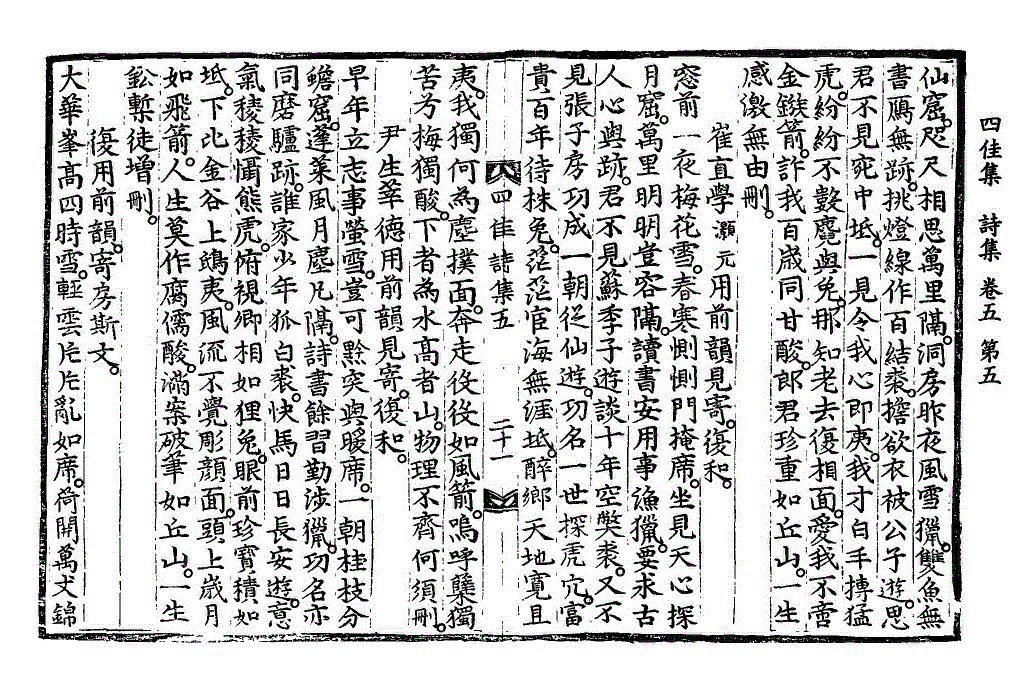 四佳集　詩集 卷五 第五
仙窟。咫尺相思萬里隔。洞房昨夜風雪獵。雙魚無
書鴈無跡。挑燈線作百結裘。擔欲衣被公子遊。思
君不見宛中坻。一見令我心卽夷。我才白手搏猛
虎。紛紛不數麂與兔。那知老去復相面。愛我不啻
金鏃箭。許我百歲同甘酸。郎君珍重如丘山。一生
感激無由刪。
崔直學灝元用前韻見寄。復和。
窓前一夜梅花雪。春寒惻惻門掩席。坐見天心探
月窟。萬里明明豈容隔。讀書安用事漁獵。要求古
人心與跡。君不見蘇季子遊談十年空獘裘。又不
見張子房功成一朝從仙遊。功名一世探虎穴。富
貴百年待株兔。茫茫宦海無涯坻。醉鄕天地寬且
四佳詩集五　二十一
夷。我獨何爲塵撲面。奔走役役如風箭。嗚呼蘗獨
苦兮梅獨酸。下者爲水高者山。物理不齊何須刪。
尹生莘德用前韻見寄。復和。
早年立志事螢雪。豈可黔突與暖席。一朝桂枝分
蟾窟。蓬萊風月塵凡隔。詩書餘習勤涉獵。功名亦
同磨驢跡。誰家少年狐白裘。快馬日日長安遊。意
氣稜稜懾熊虎。俯視卿相如狸兔。眼前珍寶積如
坻。下比金谷上鴟夷。風流不覺彫顔面。頭上歲月
如飛箭。人生莫作腐儒酸。滿案破筆如丘山。一生
鈆槧徒增刪。
復用前韻。寄房斯文。
大華峯高四時雪。輕雲片片亂如席。荷開萬丈錦